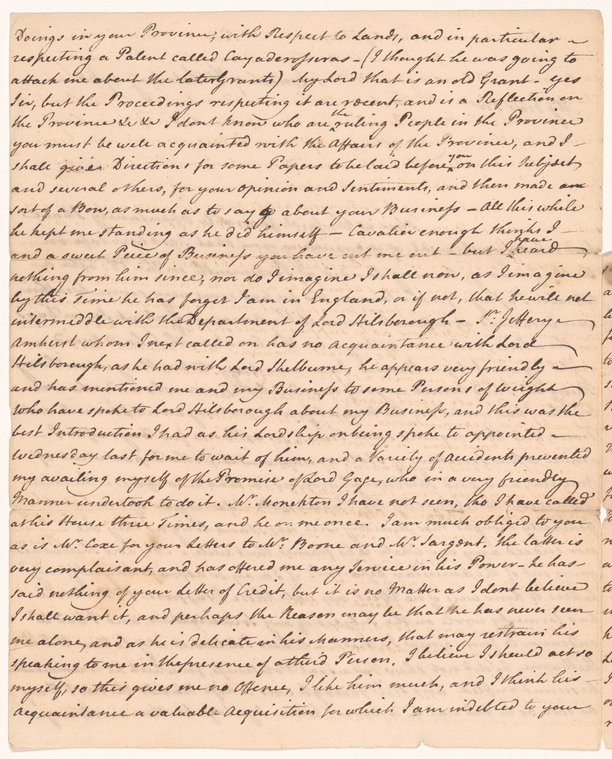 Doings in your Province; with Respect to Lands, and in particular -
respecting a Patent called Cayaderosseras - (I thought he was going to
attack me about the later Grants) My Lord that is an old Grant - yes
Sir, but the Proceedings respecting it are recent, and is a Reflection on
the Province &c &c I dont know who are the ruling People in the Province
you must be well acquainted with the Affairs of the Province, and I -
shall give Directions for some Papers to be laid before you on this Subject
and several others, for your Opinion and Sentiments, and then made
sort of a Bow, as much as to say go about your Business - All this while
he kept me standing as he did himself - Cavalier enough thinks I -
and a sweet Piece of Business you have cut me out - but I have heard
nothing from him since, nor do I imagine I shall now, as I imagine
by this Time he has forgot I am in England, or if not, that he will not
intermeddle with the Department of Lord Hilsborough - Sr. Jeffery -
Amherst whom I next called on has no acquaintance with Lord
Hilsborough, as he had with Lord Shelburne, he appears very friendly -
and has mentioned me and my Business to some Persons of weight
who have spoke to Lord Hilsborough about my Business, and this was the
best Introduction I had as his Lordship on being spoke to appointed -
Wednesday last for me to wait of him, and a Variety of accidents prevented
my availing myself of the Promise of Lord Gage, who in a very friendly
Manner undertook to do it. Mr. Monckton I have not seen, tho I have called
at his House three Times, and he on me once. I am much obliged to you
as is Mr. Coxe for your Letters to Mr. Boone and Mr. Sargent, the latter is
very complaisant, and has offered me any Service in his Power - he has
said nothing of your Letter of Credit, but it is no Matter as I dont believe
I shall want it, and perhaps the Reason may be that he has never seen
me alone, and as he is delicate in his Manners, that may restrain his
speaking to me in the presence of a third Person. I believe I should act so
myself, so this gives me no Offence, I like him much, and I think his -
acquaintance a valuable Acquisition for which I am indebted to your